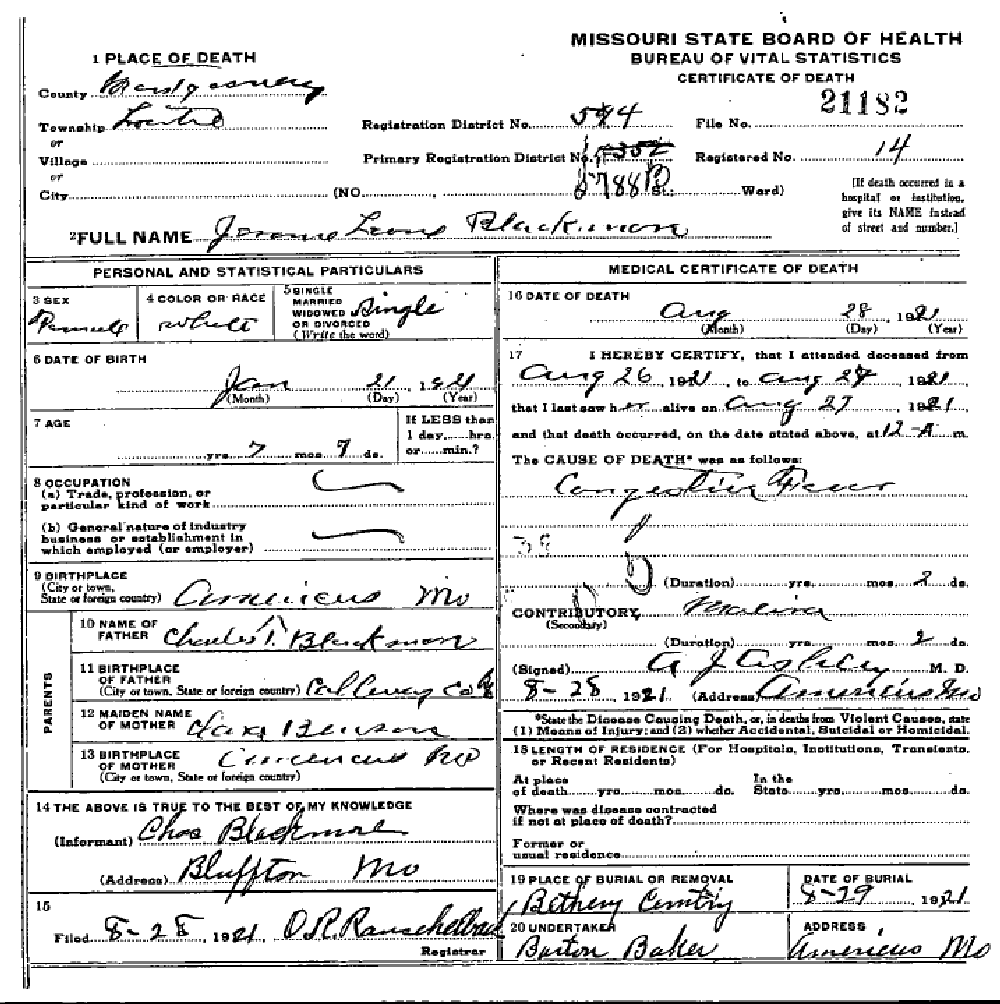 MISSOURI STATE BOARD OF HEALTH
BUREAU OF VITAL STATISTICS
CERTIFICATE OF DEATH
1 PLACE OF DEATH
County Montgomery
Township Loutre
or
Village
or
City
(NO. , St.; Ward)
Registration District No. 594
Primary Registration District No. 5788B
File No. 21182
Registered No. 14
[If death occurred in a
hospital or institution,
give its NAME instead
of street and number.]
2 FULL NAME Leona Blackmon
PERSONAL AND STATISTICAL PARTICULARS
3 SEX
Female
4 COLOR OR RACE
White
5 SINGLE
MARRIED
WIDOWED
OR DIVORCED
(Write the word)
Single
6 DATE OF BIRTH
Jan 21, 1921
(Month) (Day) (Year)
7 AGE
yrs. 7 mos. 7 ds.
If LESS than
1 day, hrs.
or min.?
8 OCCUPATION
(a) Trade, profession, or
particular kind of work
(b) General nature of industry
business or establishment in
which employed (or employer)
9 BIRTHPLACE
(City or town,
State or foreign country) Americus Mo
PARENTS
10 NAME OF
FATHER Charles T. Blackmon
11 BIRTHPLACE
OF FATHER
(City or town, State or foreign country) Calloway Co
12 MAIDEN NAME
OF MOTHER Benson
13 BIRTHPLACE
OF MOTHER
(City or town, State or foreign country) Americus Mo
14 THE ABOVE IS TRUE TO THE BEST OF MY KNOWLEDGE
(Informant) Chas Blackmore
(Address) Bluffton Mo
15
Filed 8-28, 1921 O.R. Rauschelbach
Registrar
MEDICAL CERTIFICATE OF DEATH
16 DATE OF DEATH
Aug 28, 1921
(Month) (Day) (Year)
17 I HEREBY CERTIFY, that I attended deceased from
Aug 26 1921, to Aug 27 1921
that I last saw her alive on Aug 27, 1921,
and that death occurred, on the date stated above, at 12-A m.
The CAUSE OF DEATH* was as follows:
Congestive
(Duration) yrs. mos. 2 ds.
CONTRIBUTORY
(Secondary)
(Duration) yrs. mos. 2 ds.
(Signed) M. D.
8-28, 1921 (Address) Americus Mo
*State the Disease Causing Death, or, in deaths from Violent Causes, state
(1) Means of Injury; and (2) whether Accidental, Suicidal or Homicidal.
18 LENGTH OF RESIDENCE (For Hospitals, Institutions, Transients,
or Recent Residents)
At place
of death yrs. mos. ds.
In the
State yrs. mos. ds.
Where was disease contracted
if not at place of death?
Former or
usual residence
19 PLACE OF BURIAL OR REMOVAL
Bethany Cemtry
DATE OF BURIAL
8-29 1921
20 UNDERTAKER
Barton Baker
ADDRESS
Americus Mo